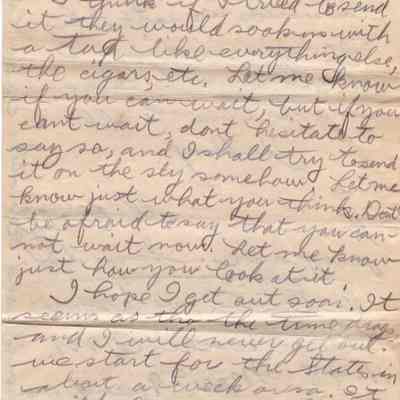 I think if I tried to send
it they would soak us with
a tax like everything else,
the cigars, etc. Let me know
if you can wait, but if you
cant wait, dont hesitate to
say so, and I shall try to send
it on the sly somehow. Let me
know just what you think. Dont
be afraid to say that you can
not wait now. Let me know
just how you look at it
I hope I get out soon. It
seems as tho the time drags
and I will never get out.
we start for the States in
about a week or so. It